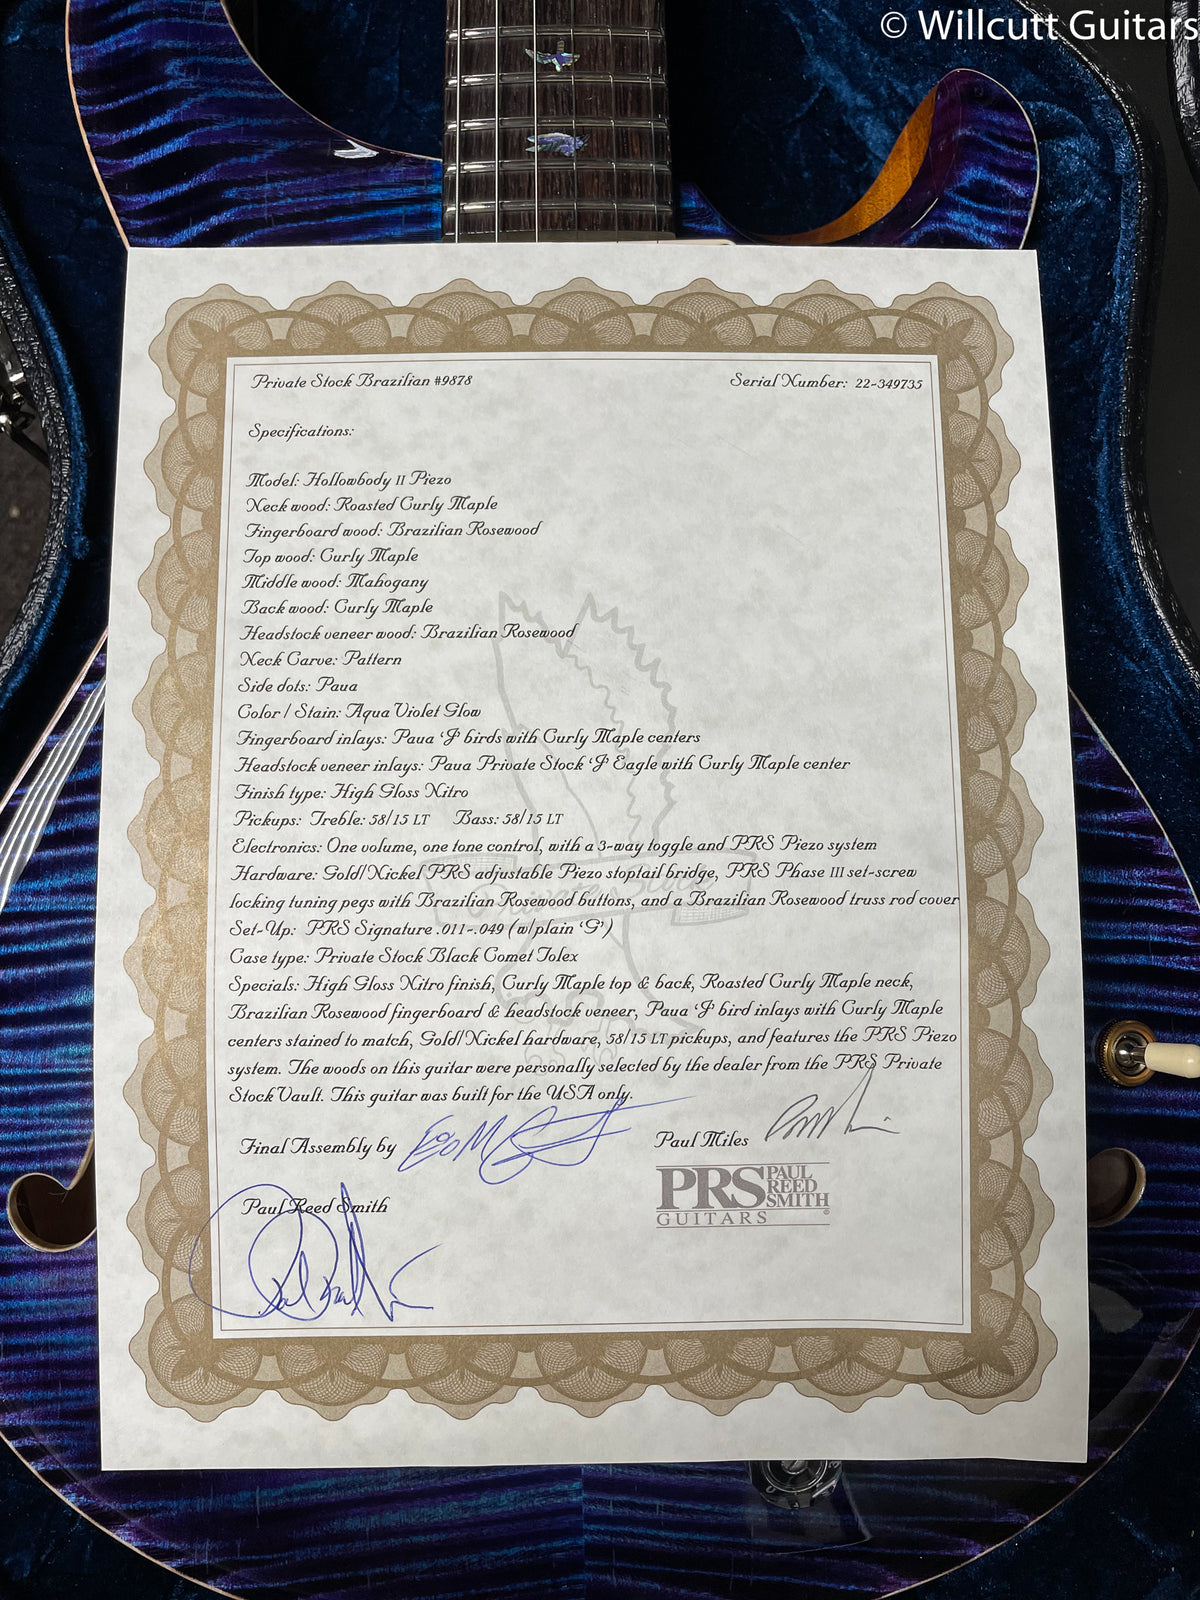 © Willcutt Guitars
Private Stock Brazilian #9878 Serial Number: 22-349735
Specifications:
Model: Hollowbody II Piezo
Neck wood: Roasted Curly Maple
Fingerboard wood: Brazilian Rosewood
Top wood: Curly Maple
Middle wood: Mahogany
Back wood: Curly Maple
Headstock veneer wood: Brazilian Rosewood
Neck Carve: Pattern
Side dots: Paua
Color / Stain: Aqua Violet Glow
Fingerboard inlays: Paua 'J' birds with Curly Maple centers
Headstock veneer inlays: Paua Private Stock 'J' Eagle with Curly Maple center
Finish type: High Gloss Nitro
Pickups: Treble: 58/15 LT Bass: 58/15 LT
Electronics: One volume, one tone control, with a 3-way toggle and PRS Piezo system
Hardware: Gold/Nickel PRS adjustable Piezo stoptail bridge, PRS Phase III set-screw
locking tuning pegs with Brazilian Rosewood buttons, and a Brazilian Rosewood truss rod cover
Set-Up: PRS Signature .011-.049 (w/plain 'G')
Case type: Private Stock Black Comet Tolex
Specials: High Gloss Nitro finish, Curly Maple top & back, Roasted Curly Maple neck,
Brazilian Rosewood fingerboard & headstock veneer, Paua 'J' bird inlays with Curly Maple
centers stained to match, Gold/Nickel hardware, 58/15 LT pickups, and features the PRS Piezo
system. The woods on this guitar were personally selected by the dealer from the PRS Private
Stock Vault. This guitar was built for the USA only.
Final Assembly by Paul Miles
PRS PAUL REED SMITH
GUITARS
Paul Reed Smith
Private Stock